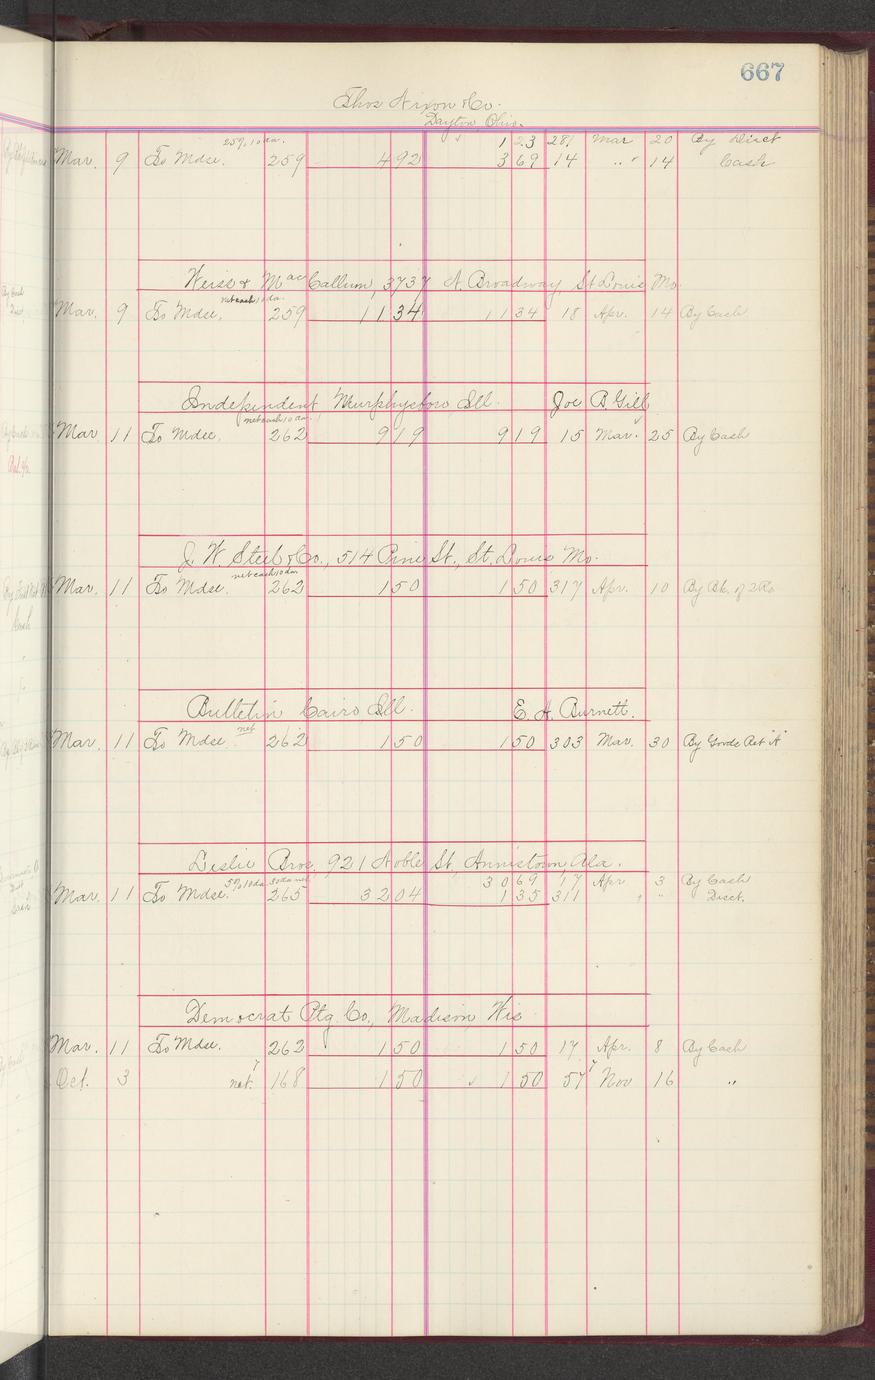 667
Thos Nixon & Co.
Dayton Ohio.
25% 10 da. 1 23 281 Mar 20 By Disct
Mar. 9 To Mdse. 259 4 92 3 69 14 " 14 Cash
Weiss & MacCallum, 3737 N. Broadway, St Louis Mo.
net cash 10 da.
Mar. 9 To Mdse. 259 11 34 11 34 18 Apr. 14 By Cash
Independent Murphysboro Ill. Joe B. Gill
net cash 10 da.
Mar 11 To Mdse. 262 9 19 9 19 15 Mar. 25 By Cash
J. W. Steel & Co., 514 Pine St., St. Louis Mo.
net cash 10 da
Mar. 11 To Mdse. 262 1 50 1 50 317 Apr. 10 By Bk. of 2 Ro
Bulletin Cairo Ill. E. A. Burnett.
net
Mar. 11 To Mdse 262 1 50 1 50 303 Mar. 30 By Goods Ret "A"
Leslie Bros, 921 Noble St, Annistown, Ala.
5% 10 da 30 da net 30 69 17 Apr 3 By Cash
Mar. 11 To Mdse. 265 32 04 1 35 311 " " Disct.
Democrat Ptg. Co., Madison Wis
Mar. 11 To Mdse. 262 1 50 1 50 17 Apr. 8 By Cash
Oct. 3 net. 7 168 1 50 1 50 57 7 Nov 16 "